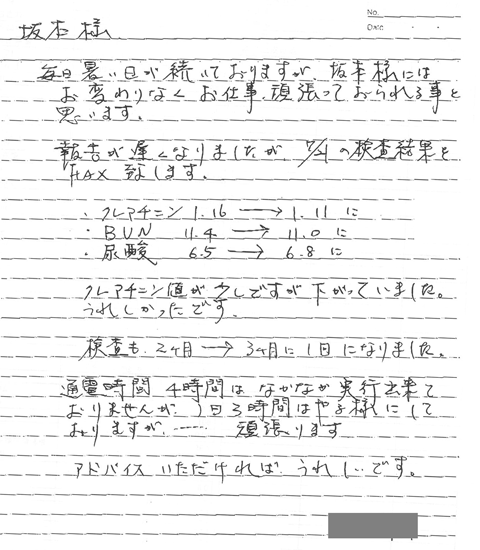 No.
Date
坂本様
毎日暑い日が続いておりますが、坂本様には
お変わりなくお仕事、頑張っておられる事と
思います。
報告が遅くなりましたが、7/21の検査結果を
FAX致します。
・クレアチニン 1.16 → 1.11に
・BUN 11.4 → 11.0に
・尿酸 6.5 → 6.8に
クレアチニン値が少しですが下がっていました。
うれしかったです。
検査も、2ヶ月 → 3ヶ月に1回になりました。
通電時間 4時間はなかなか実行出来て
おりませんが、1日3時間はやる様にして
おりますが、…… 頑張ります
アドバイスいただければ、うれしいです。